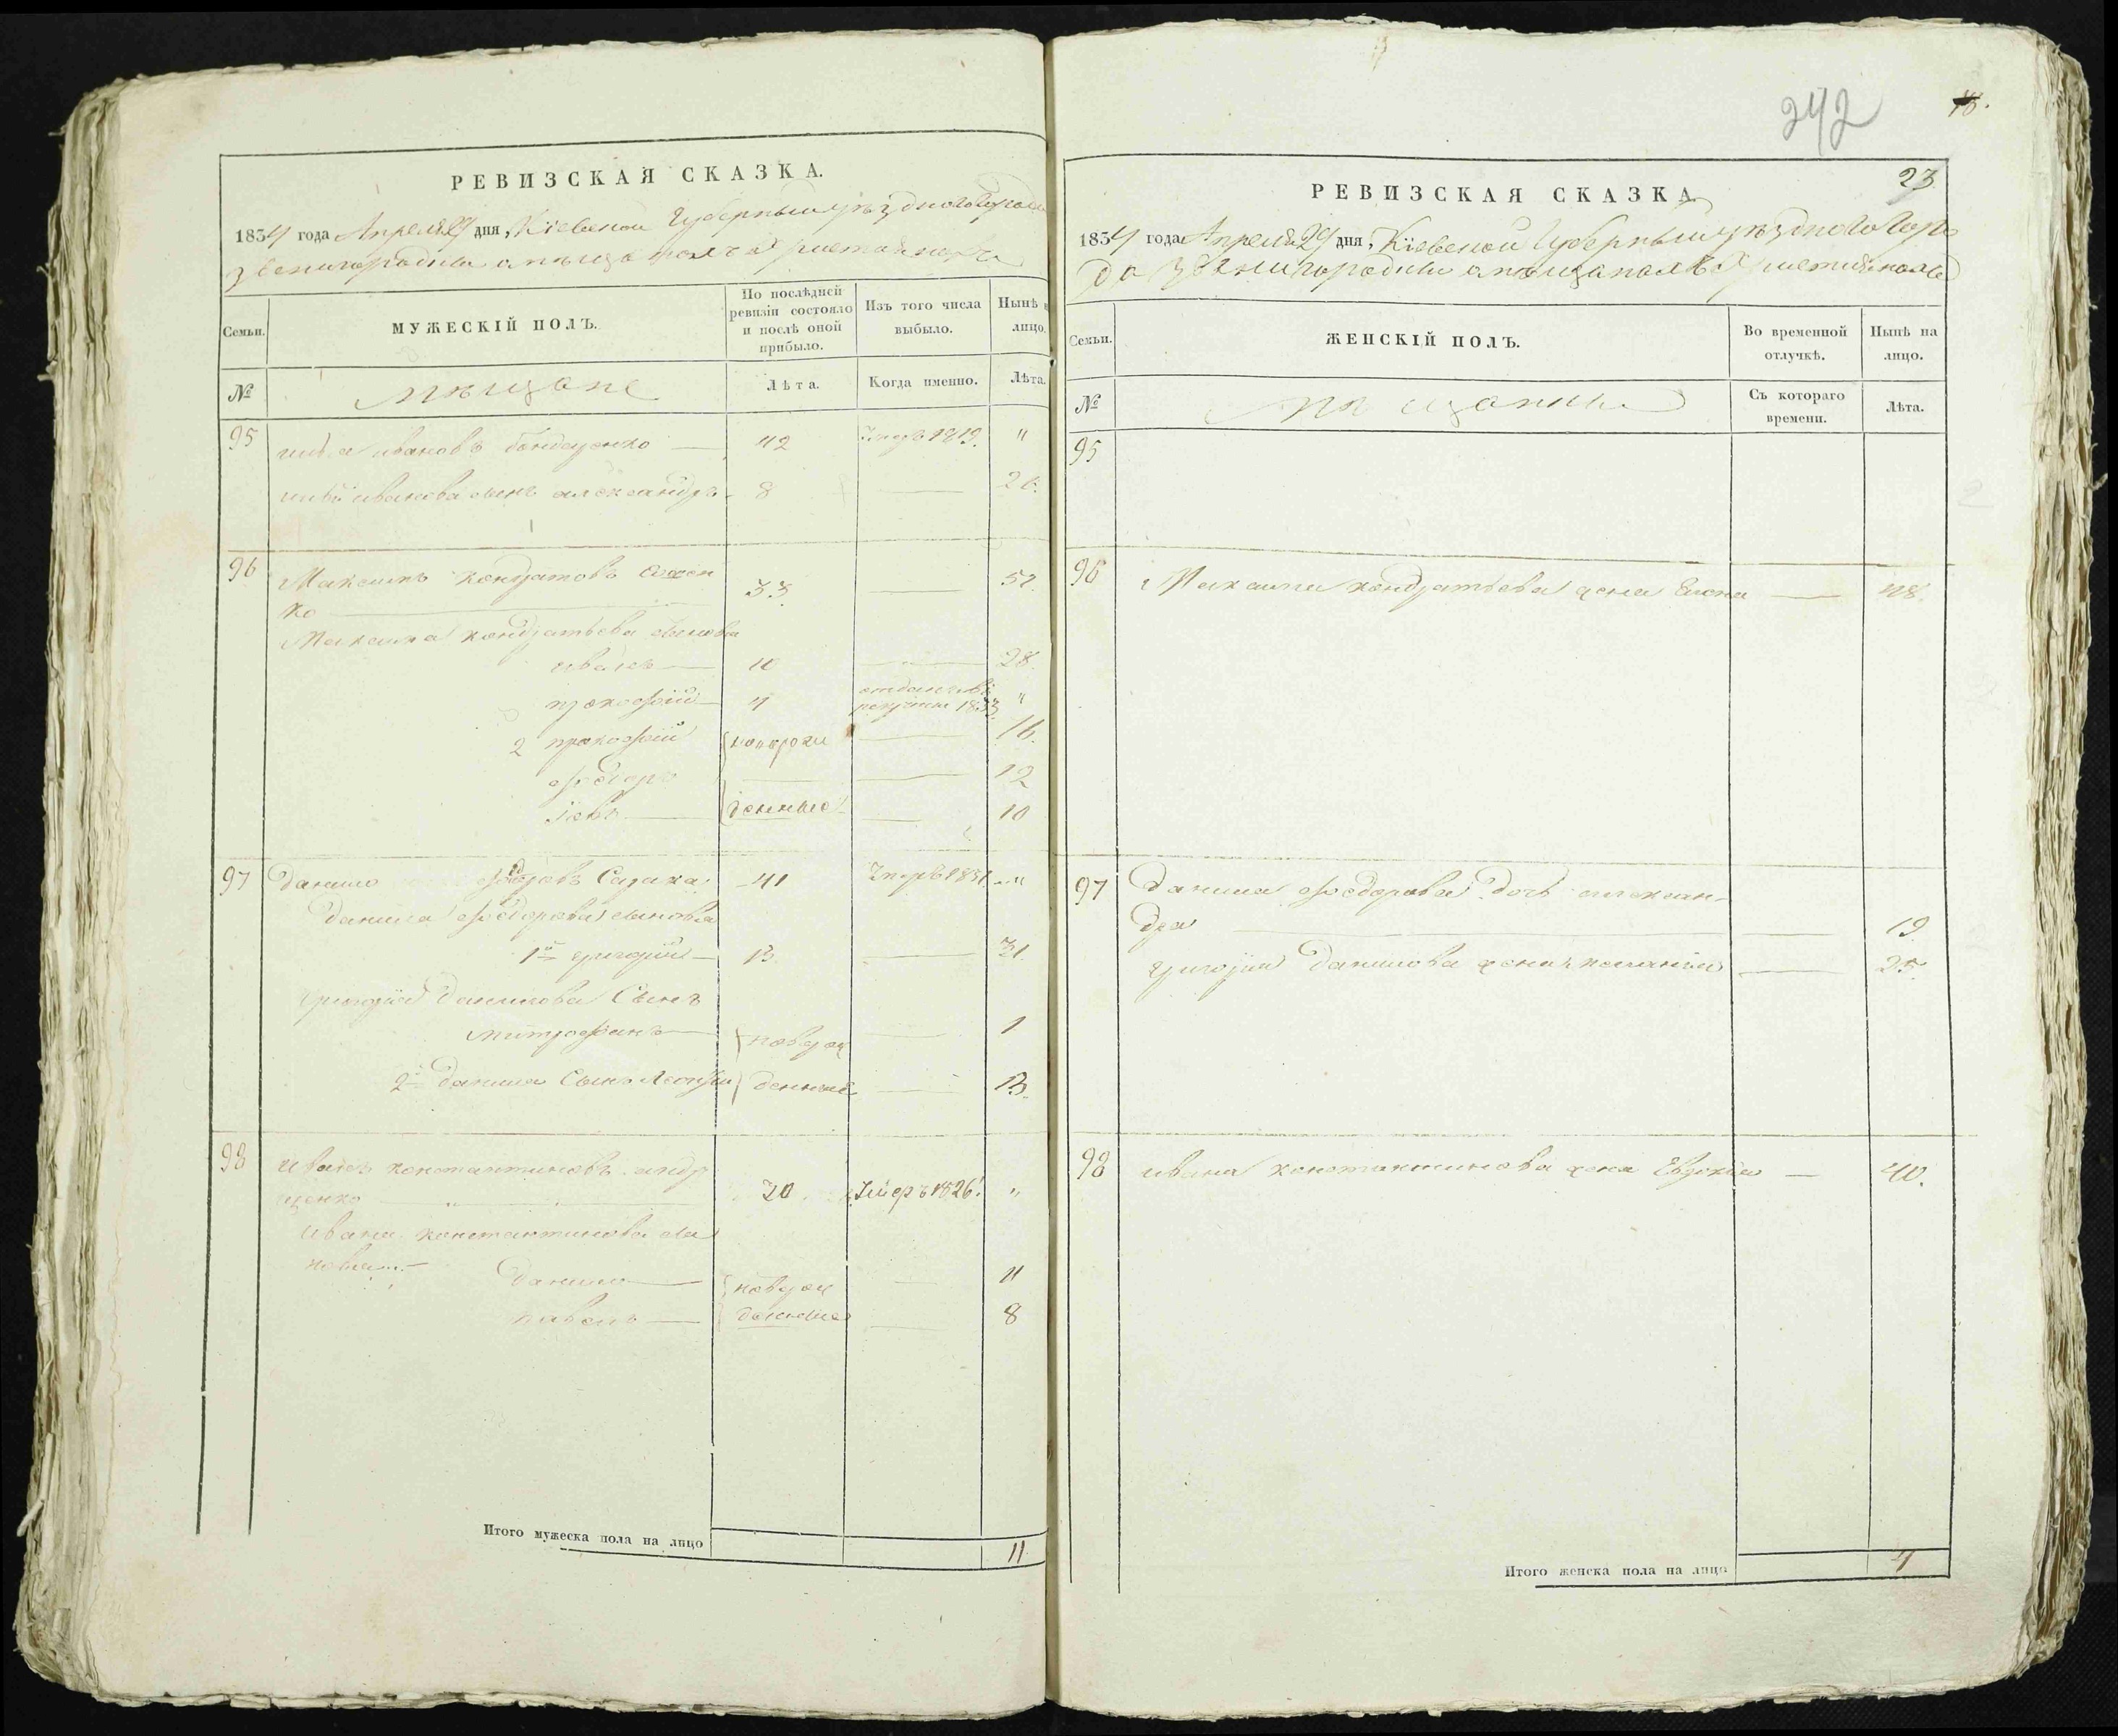 РЕВИЗСКАЯ СКАЗКА.
1834 года Апреля 29 дня, Кіевской Губерніи уѣзднаго города
звенигородки
Семьи.
МУЖЕСКІЙ ПОЛЪ.
По послѣдней ревизіи состояло и послѣ оной прибыло.
Изъ того числа выбыло.
Нынѣ лицо.
№
мѣщане
Лѣта.
Когда именно.
Лѣта.
95 ивановъ бондаренко 42 1819 "
иванова сынъ александръ 8 20.
96 Максимъ кондратовъ
ко 33. 52.
Максима кондратьева сыновья
иванъ 10 28.
прокофій 4 отданъ въ рекруты 1833 "
2 прокофій новорож 16.
федоръ 12
Іовъ денные 10
97 данило федоровъ 41 1831 "
данила федорова сыновья
1й григорій 13. 31.
григорія данилова Сынъ
митрофанъ новорож 1
2й данила Сынъ Леонтій денные 13.
98 иванъ константиновъ андр
ценко 20 Умеръ 1826. "
ивана константинова сы
новья
данило новорож 11
павелъ денные 8
Итого мужеска пола на лицо 11.
242
18.
23
РЕВИЗСКАЯ СКАЗКА
1834 года Апреля 29 дня, Кіевской Губерніи уѣзднаго горо
да Звенигородки
Семьи.
ЖЕНСКІЙ ПОЛЪ.
Во временной отлучкѣ.
Нынѣ на лицо.
№
мѣщанки
Съ котораго времени.
Лѣта.
95
96 Максима кондратьева жена Елена 48.
97 Данила федорова дочь алексан-
дра 19
григорія данилова жена 25.
98 ивана константинова жена Евдокія 40.
Итого женска пола на лицо 4